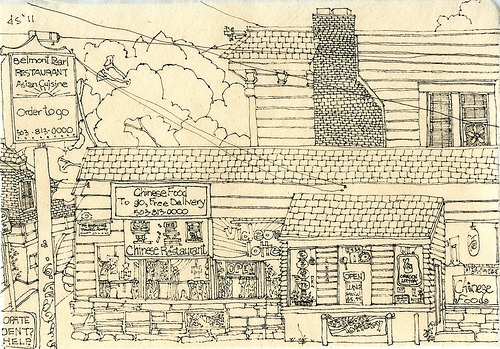 ds '11
Belmont Pearl
RESTAURANT
Asian Cuisine
Order to go
503-813-0000
Chinese Food
To go, Free Delivery
503-813-0000
Chinese Restaurant
OPEN
OPEN
LUN
Chinese
Foods
DENT?
HELP